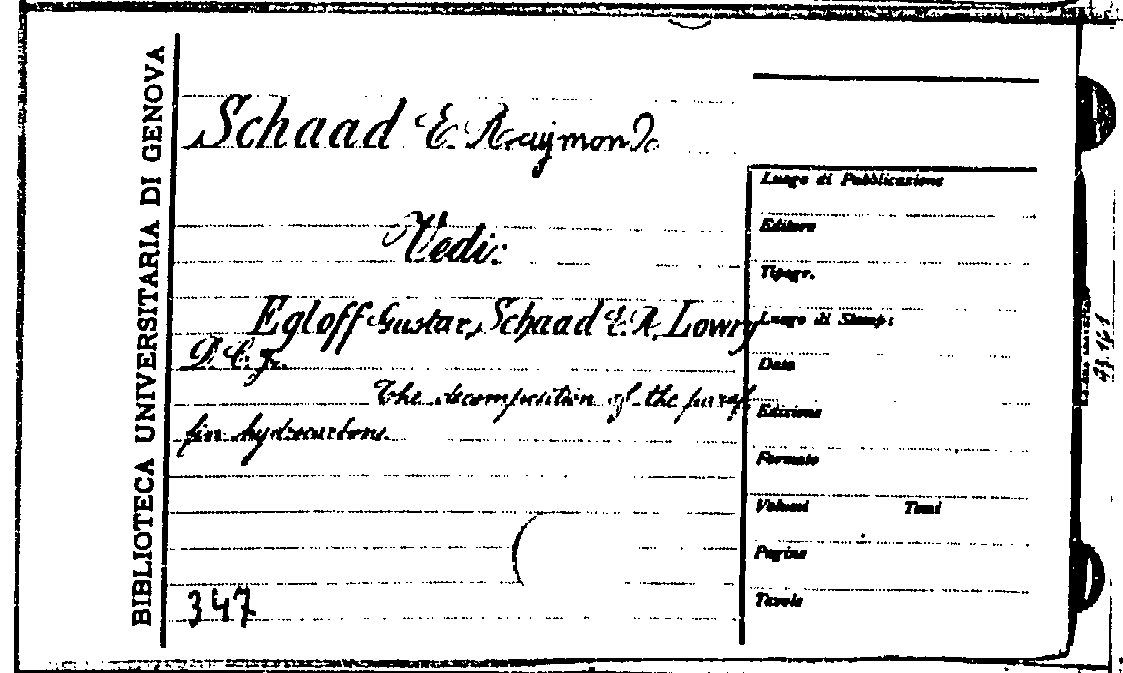 BIBLIOTECA UNIVERSITARIA DI GENOVA
Schaad E. Raymond
Vedi:
Egloff Gustav, Schaad E. R. Lowry
D. C. Jr.
The decomposition of the paraf
fin hydrocarbons.
347
Luogo di Pubblicazione
Editore
Tipogr.
Luogo di Stamp:
Data
Edizione
Formato
Volumi Tomi
Pagine
Tavole